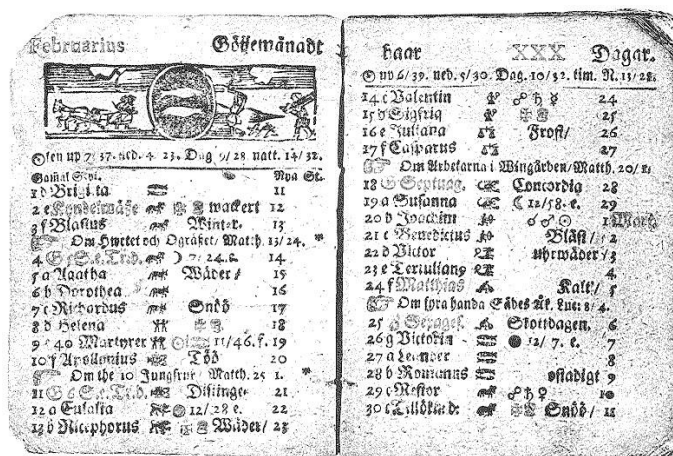 Februarius Göijemånadt
Solen up 7/37. ned. 4 23. Dag 9/28 natt. 14/32.
Gamal Styl. Nya St.
1 d Brigitta 11
2 e Kyndelmässe wackert 12
3 f Blasius Winter. 13
Om Hwetet och Ogräset/ Matth. 13/24. *
4 G 5 S. e. Tr. d. ☽ 7/24. 14
5 a Agatha Wäder/ 15
6 b Dorothea 16
7 c Richardus Snöö 17
8 d Helena 18
9 e 40 Martyrer 11/46. f. 19
10 f Apollonius Töö 20
Om the 10 Jungfrur Matth. 25 1. *
11 G 6 S. e. Tr. d. 21
12 a Eulalia 12/28 e. 22
13 b Nicephorus Wäder/ 23
haar XXX Dagar.
☉ up 6/39. ned. 5/30. Dag. 10/32. tim. N. 13/28.
14 c Valentin ☍ ♄ ☿ 24
15 d Sigfrid 25
16 e Juliana Frost/ 26
17 f Casparus 27
Om Arbetarna i Wingården/ Matth. 20/1.
18 G Septuag. Concordia 28
19 a Susanna ☾ 12/58. e. 29
20 b Joachim ☌ ♂ ☉ 1 Mart.
21 c Benedictus Bläst/ 2
22 d Victor uhrwäder/ 3
23 e Tertulian9 4
24 f Matthias Kalt/ 5
Om fyra handa Sädes Åk. Luc: 8/4.
25 G Sexages. Skottdagen. 6
26 g Victorin ● 12/7. e. 7
27 a Leander 8
28 b Romanus ostadigt 9
29 c Nestor ☍ ♄ ♀ 10
30 c Tillökt d: Snöö/ 11